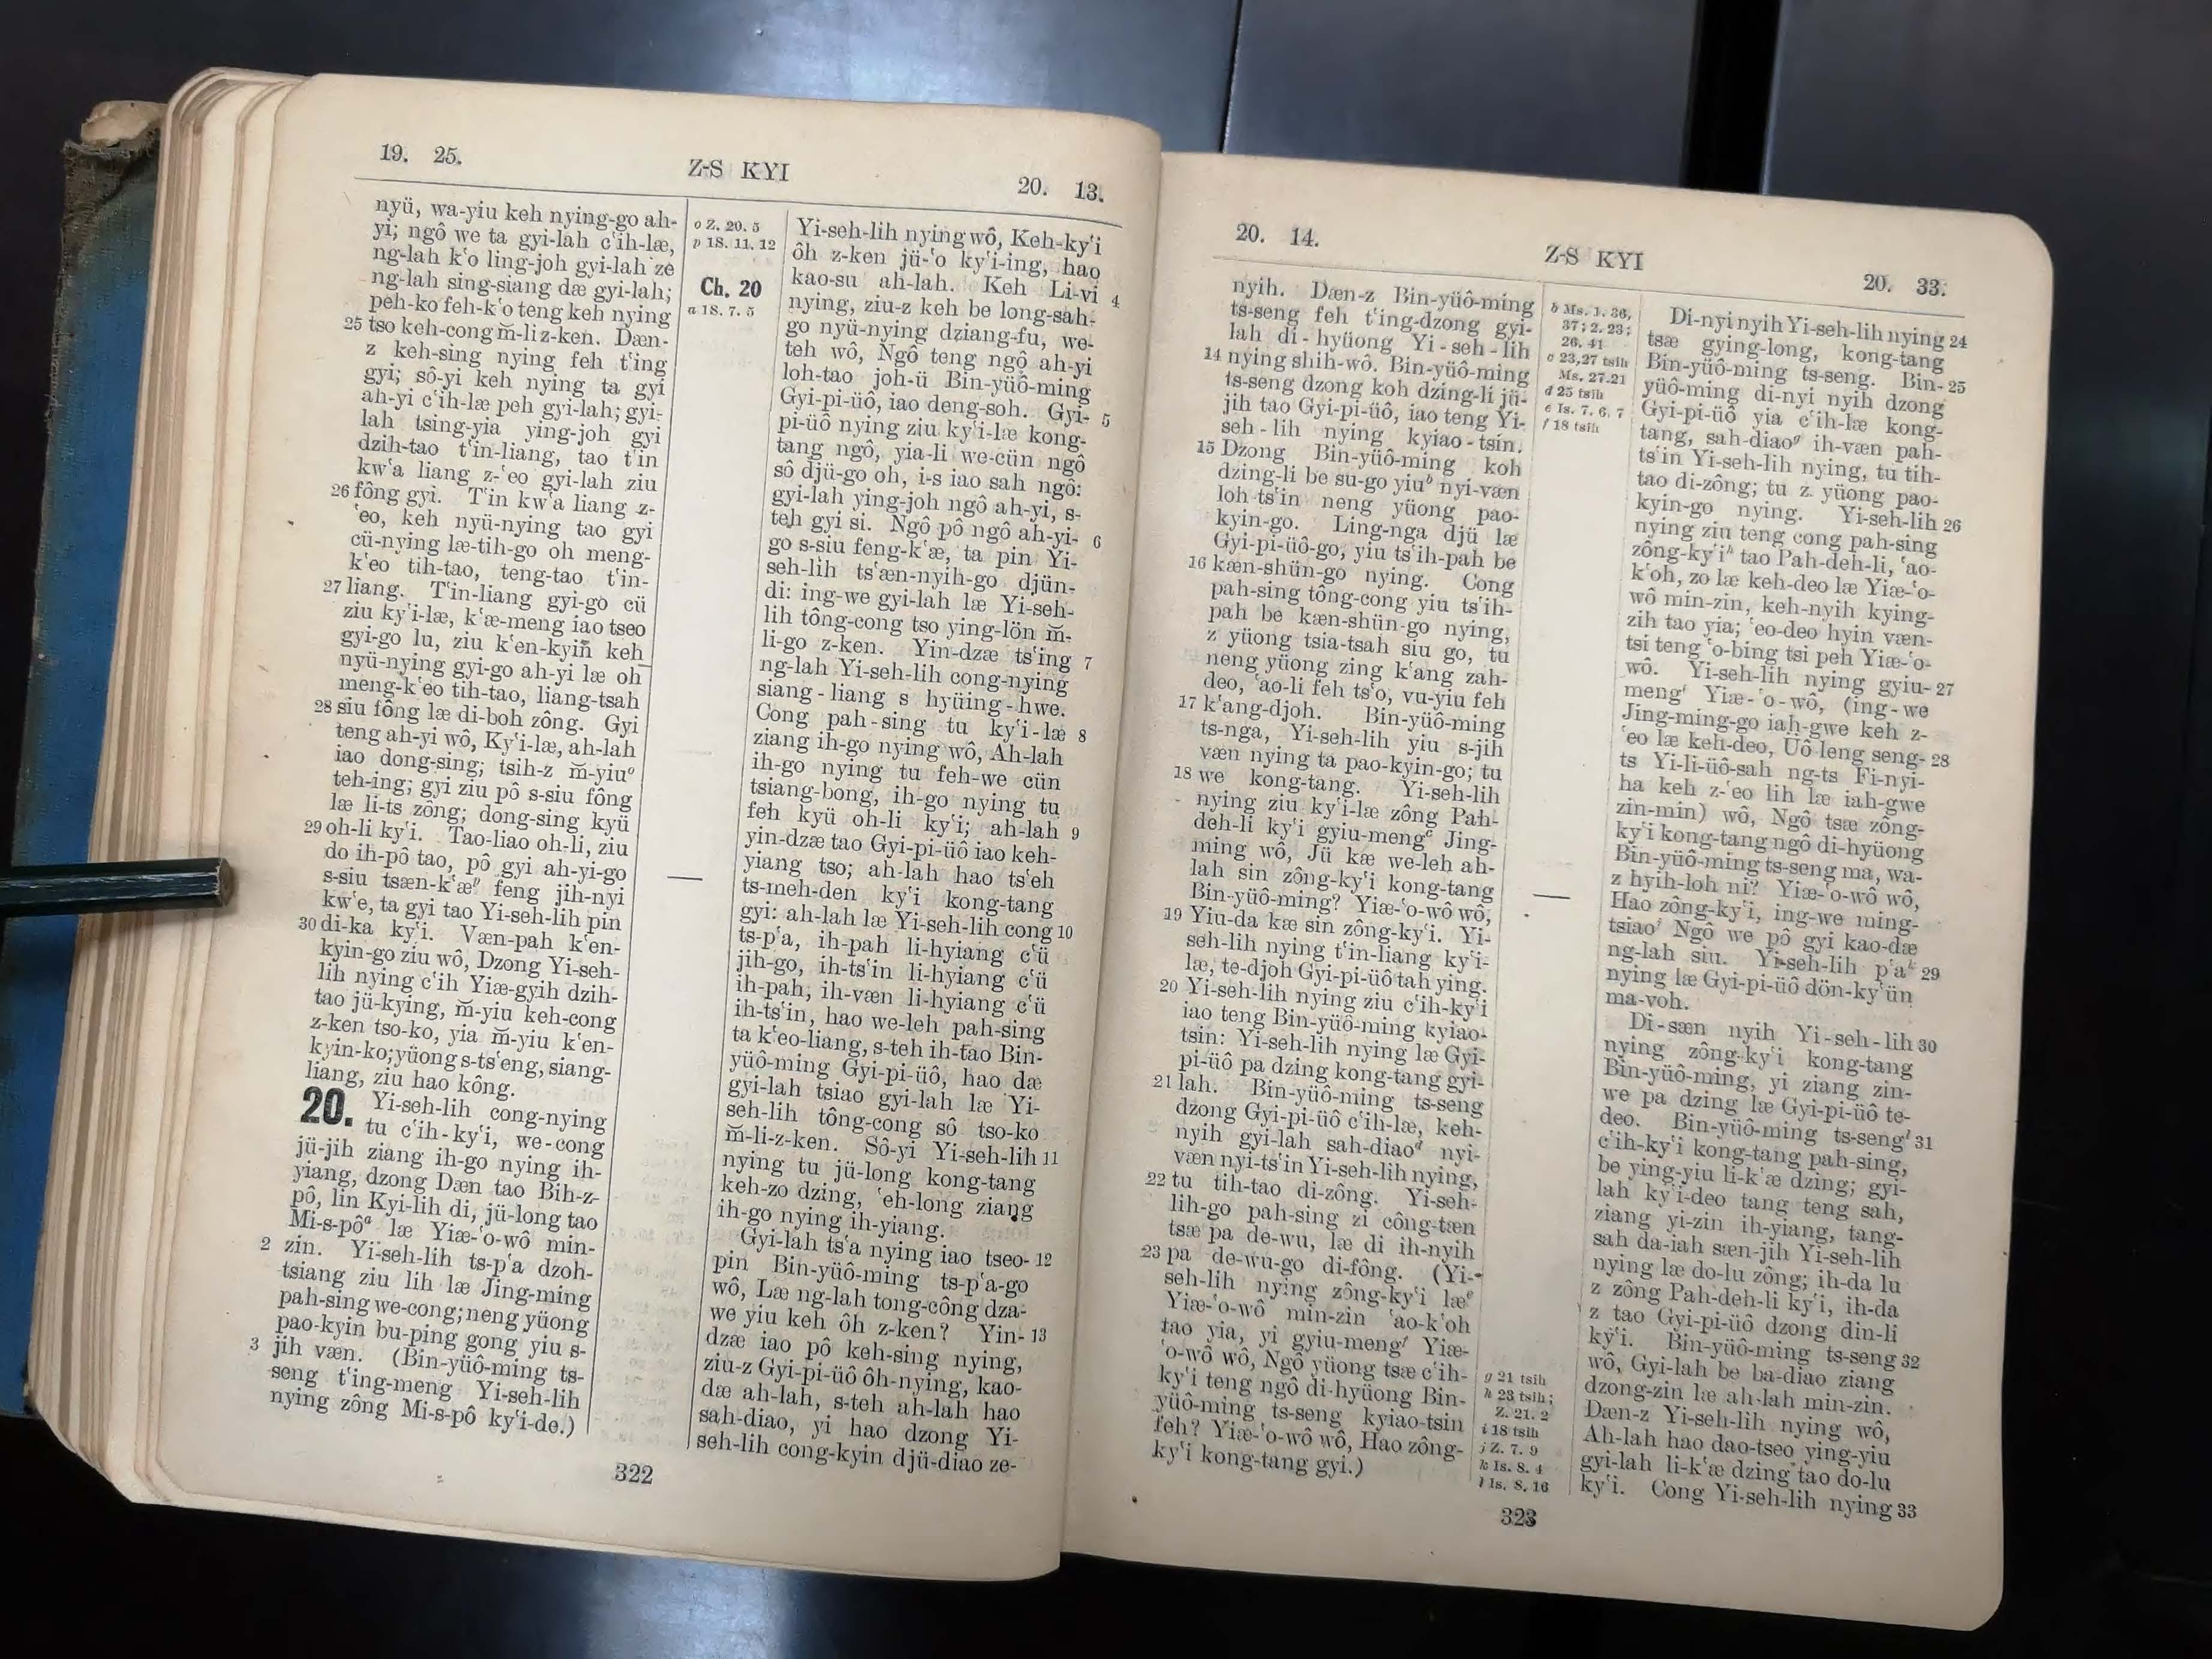 19. 25.
Z-S KYI
20. 13.
nyü, wa-yiu keh nying-go ah-
yi; ngô we ta gyi-lah c'ih-læ,
ng-lah k'o ling-joh gyi-lah ze
ng-lah sing-siang dæ gyi-lah;
peh-ko feh-k'o teng keh nying
25 tso keh-cong m̆-li z-ken. Dæn-
z keh-sing nying feh t'ing
gyi; sô-yi keh nying ta gyi
ah-yi c'ih-læ peh gyi-lah; gyi-
lah tsing-yia ying-joh gyi
dzih-tao t'in-liang, tao t'in
kw'a liang z-'eo gyi-lah ziu
26 fông gyi. T'in kw'a liang z-
'eo, keh nyü-nying tao gyi
cü-nying læ-tih-go oh meng-
k'eo tih-tao, teng-tao t'in-
27 liang. T'in-liang gyi-go cü
ziu ky'i-læ, k'æ-meng iao tseo
gyi-go lu, ziu k'en-kyin keh
nyü-nying gyi-go ah-yi læ oh
meng-k'eo tih-tao, liang-tsah
28 siu fông læ di-boh zông. Gyi
teng ah-yi wô, Ky'i-læ, ah-lah
iao dong-sing; tsih-z m̆-yiuᵒ
teh-ing; gyi ziu pô s-siu fông
læ li-ts zông; dong-sing kyü
29 oh-li ky'i. Tao-liao oh-li, ziu
do ih-pô tao, pô gyi ah-yi-go
s-siu tsæn-k'æᵖ feng jih-nyi
kw'e, ta gyi tao Yi-seh-lih pin
30 di-ka ky'i. Væn-pah k'en-
kyin-go ziu wô, Dzong Yi-seh-
lih nying c'ih Yiæ-gyih dzih-
tao jü-kying, m̆-yiu keh-cong
z-ken tso-ko, yia m̆-yiu k'en-
kyin-ko; yüong s-ts'eng, siang-
liang, ziu hao kông.
20. Yi-seh-lih cong-nying
tu c'ih-ky'i, we-cong
jü-jih ziang ih-go nying ih-
yiang, dzong Dæn tao Bih-z-
pô, lin Kyi-lih di, jü-long tao
Mi-s-pôᵃ læ Yiæ-'o-wô min-
2 zin. Yi-seh-lih ts-p'a dzoh-
tsiang ziu lih læ Jing-ming
pah-sing we-cong; neng yüong
pao-kyin bu-ping gong yiu s-
3 jih væn. (Bin-yüô-ming ts-
seng t'ing-meng Yi-seh-lih
nying zông Mi-s-pô ky'i-de.)
o Z. 20. 5
p 1S. 11. 12
Ch. 20
a 1S. 7. 5
Yi-seh-lih nying wô, Keh-ky'i
ôh z-ken jü-'o ky'i-ing, hao
kao-su ah-lah. Keh Li-vi 4
nying, ziu-z keh be long-sah-
go nyü-nying dziang-fu, we-
teh wô, Ngô teng ngô ah-yi
loh-tao joh-ü Bin-yüô-ming
Gyi-pi-üô, iao deng-soh. Gyi- 5
pi-üô nying ziu ky'i-læ kong-
tang ngô, yia-li we-cün ngô
sô djü-go oh, i-s iao sah ngô:
gyi-lah ying-joh ngô ah-yi, s-
teh gyi si. Ngô pô ngô ah-yi- 6
go s-siu feng-k'æ, ta pin Yi-
seh-lih ts'æn-nyih-go djün-
di: ing-we gyi-lah læ Yi-seh-
lih tông-cong tso ying-lön m̆-
li-go z-ken. Yin-dzæ ts'ing 7
ng-lah Yi-seh-lih cong-nying
siang-liang s hyüing-hwe.
Cong pah-sing tu ky'i-læ 8
ziang ih-go nying wô, Ah-lah
ih-go nying tu feh-we cün
tsiang-bong, ih-go nying tu
feh kyü oh-li ky'i; ah-lah 9
yin-dzæ tao Gyi-pi-üô iao keh-
yiang tso; ah-lah hao ts'eh
ts-meh-den ky'i kong-tang
gyi: ah-lah læ Yi-seh-lih cong 10
ts-p'a, ih-pah li-hyiang c'ü
jih-go, ih-ts'in li-hyiang c'ü
ih-pah, ih-væn li-hyiang c'ü
ih-ts'in, hao we-leh pah-sing
ta k'eo-liang, s-teh ih-tao Bin-
yüô-ming Gyi-pi-üô, hao dæ
gyi-lah tsiao gyi-lah læ Yi-
seh-lih tông-cong sô tso-ko
m̆-li-z-ken. Sô-yi Yi-seh-lih 11
nying tu jü-long kong-tang
keh-zo dzing, 'eh-long ziang
ih-go nying ih-yiang.
Gyi-lah ts'a nying iao tseo- 12
pin Bin-yüô-ming ts-p'a-go
wô, Læ ng-lah tong-công dza-
we yiu keh ôh z-ken? Yin- 13
dzæ iao pô keh-sing nying,
ziu-z Gyi-pi-üô ôh-nying, kao-
dæ ah-lah, s-teh ah-lah hao
sah-diao, yi hao dzong Yi-
seh-lih cong-kyin djü-diao ze-
322
20. 14.
Z-S KYI
20. 33.
nyih. Dæn-z Bin-yüô-ming
ts-seng feh t'ing-dzong gyi-
lah di-hyüong Yi-seh-lih
14 nying shih-wô. Bin-yüô-ming
ts-seng dzong koh dzing-li jü-
jih tao Gyi-pi-üô, iao teng Yi-
seh-lih nying kyiao-tsin.
15 Dzong Bin-yüô-ming koh
dzing-li be su-go yiuᵇ nyi-væn
loh-ts'in neng yüong pao-
kyin-go. Ling-nga djü læ
Gyi-pi-üô-go, yiu ts'ih-pah be
16 kæn-shün-go nying. Cong
pah-sing tông-cong yiu ts'ih-
pah be kæn-shün-go nying,
z yüong tsia-tsah siu go, tu
neng yüong zing k'ang zah-
deo, 'ao-li feh ts'o, vu-yiu feh
17 k'ang-djoh. Bin-yüô-ming
ts-nga, Yi-seh-lih yiu s-jih
væn nying ta pao-kyin-go; tu
18 we kong-tang. Yi-seh-lih
nying ziu ky'i-læ zông Pah-
deh-li ky'i gyiu-mengᶜ Jing-
ming wô, Jü kæ we-leh ah-
lah sin zông-ky'i kong-tang
Bin-yüô-ming? Yiæ-'o-wô wô,
19 Yiu-da kæ sin zông-ky'i. Yi-
seh-lih nying t'in-liang ky'i-
læ, te-djoh Gyi-pi-üô tah ying.
20 Yi-seh-lih nying ziu c'ih-ky'i
iao teng Bin-yüô-ming kyiao-
tsin: Yi-seh-lih nying læ Gyi-
pi-üô pa dzing kong-tang gyi-
21 lah. Bin-yüô-ming ts-seng
dzong Gyi-pi-üô c'ih-læ, keh-
nyih gyi-lah sah-diaoᵈ nyi-
væn nyi-ts'in Yi-seh-lih nying,
22 tu tih-tao di-zông. Yi-seh-
lih-go pah-sing zi công-tæn
tsæ pa de-wu, læ di ih-nyih
23 pa de-wu-go di-fông. (Yi-
seh-lih nying zông-ky'i læᵉ
Yiæ-'o-wô min-zin 'ao-k'oh
tao yia, yi gyiu-mengᶠ Yiæ-
'o-wô wô, Ngô yüong tsæ c'ih-
ky'i teng ngô di-hyüong Bin-
yüô-ming ts-seng kyiao-tsin
feh? Yiæ-'o-wô wô, Hao zông-
ky'i kong-tang gyi.)
b Ms. 1. 36,
37; 2. 23;
26. 41
c 23,27 tsih
Ms. 27.21
d 25 tsih
e Is. 7. 6, 7
f 18 tsih
g 21 tsih
h 23 tsih;
Z. 21. 2
i 18 tsih
j Z. 7. 9
k Is. 8. 4
l Is. 8. 16
Di-nyi nyih Yi-seh-lih nying 24
tsæ gying-long, kong-tang
Bin-yüô-ming ts-seng. Bin- 25
yüô-ming di-nyi nyih dzong
Gyi-pi-üô yia c'ih-læ kong-
tang, sah-diaoᵍ ih-væn pah-
ts'in Yi-seh-lih nying, tu tih-
tao di-zông; tu z yüong pao-
kyin-go nying. Yi-seh-lih 26
nying ziu teng cong pah-sing
zông-ky'iʰ tao Pah-deh-li, 'ao-
k'oh, zo læ keh-deo læ Yiæ-'o-
wô min-zin, keh-nyih kying-
zih tao yia; 'eo-deo hyin væn-
tsi teng 'o-bing tsi peh Yiæ-'o-
wô. Yi-seh-lih nying gyiu- 27
mengⁱ Yiæ-'o-wô, (ing-we
Jing-ming-go iah-gwe keh z-
'eo læ keh-deo, Üô-leng seng- 28
ts Yi-li-üô-sah ng-ts Fi-nyi-
ha keh z-'eo lih læ iah-gwe
zin-min) wô, Ngô tsæ zông-
ky'i kong-tang ngô di-hyüong
Bin-yüô-ming ts-seng ma, wa-
z hyih-loh ni? Yiæ-'o-wô wô,
Hao zông-ky'i, ing-we ming-
tsiaoʲ Ngô we pô gyi kao-dæ
ng-lah siu. Yi-seh-lih p'aᵏ 29
nying læ Gyi-pi-üô dön-ky'ün
ma-voh.
Di-sæn nyih Yi-seh-lih 30
nying zông-ky'i kong-tang
Bin-yüô-ming, yi ziang zin-
we pa dzing læ Gyi-pi-üô te-
deo. Bin-yüô-ming ts-sengˡ 31
c'ih-ky'i kong-tang pah-sing,
be ying-yiu li-k'æ dzing; gyi-
lah ky'i-deo tang teng sah,
ziang yi-zin ih-yiang, tang-
sah da-iah sæn-jih Yi-seh-lih
nying læ do-lu zông; ih-da lu
z zông Pah-deh-li ky'i, ih-da
z tao Gyi-pi-üô dzong din-li
ky'i. Bin-yüô-ming ts-seng 32
wô, Gyi-lah be ba-diao ziang
dzong-zin læ ah-lah min-zin.
Dæn-z Yi-seh-lih nying wô,
Ah-lah hao dao-tseo ying-yiu
gyi-lah li-k'æ dzing tao do-lu
ky'i. Cong Yi-seh-lih nying 33
323